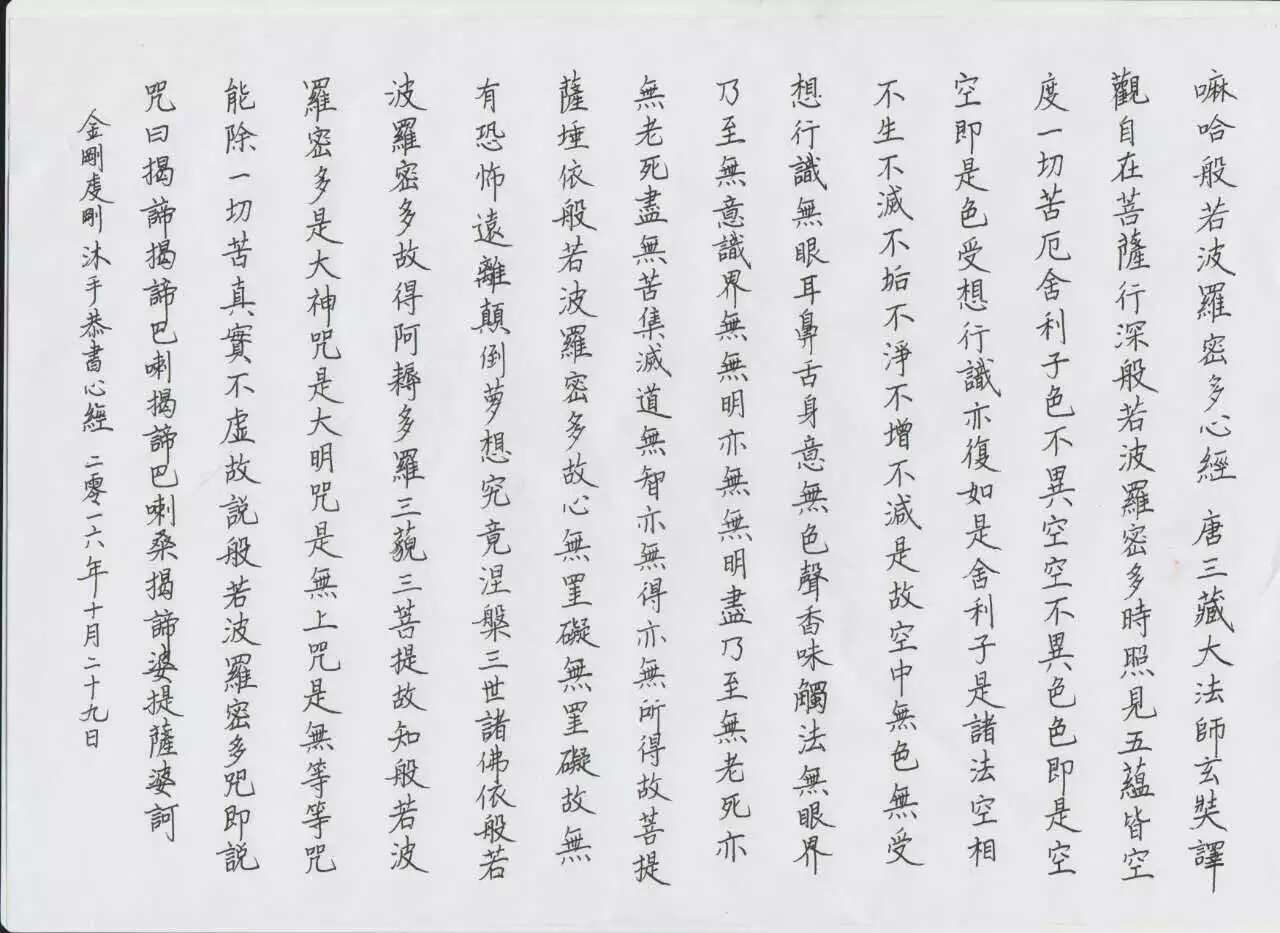 嘛哈般若波羅密多心經 唐三藏大法師玄奘譯
觀自在菩薩行深般若波羅密多時照見五蘊皆空
度一切苦厄舍利子色不異空空不異色色即是空
空即是色受想行識亦復如是舍利子是諸法空相
不生不滅不垢不淨不增不減是故空中無色無受
想行識無眼耳鼻舌身意無色聲香味觸法無眼界
乃至無意識界無無明亦無無明盡乃至無老死亦
無老死盡無苦集滅道無智亦無得亦無所得故菩提
薩埵依般若波羅密多故心無罣礙無罣礙故無
有恐怖遠離顛倒夢想究竟涅槃三世諸佛依般若
波羅密多故得阿耨多羅三藐三菩提故知般若波
羅密多是大神咒是大明咒是無上咒是無等等咒
能除一切苦真實不虛故說般若波羅密多咒即說
咒曰揭諦揭諦巴喇揭諦巴喇桑揭諦婆提薩婆訶
金剛虔剛沐手恭書心經 二零一六年十月二十九日